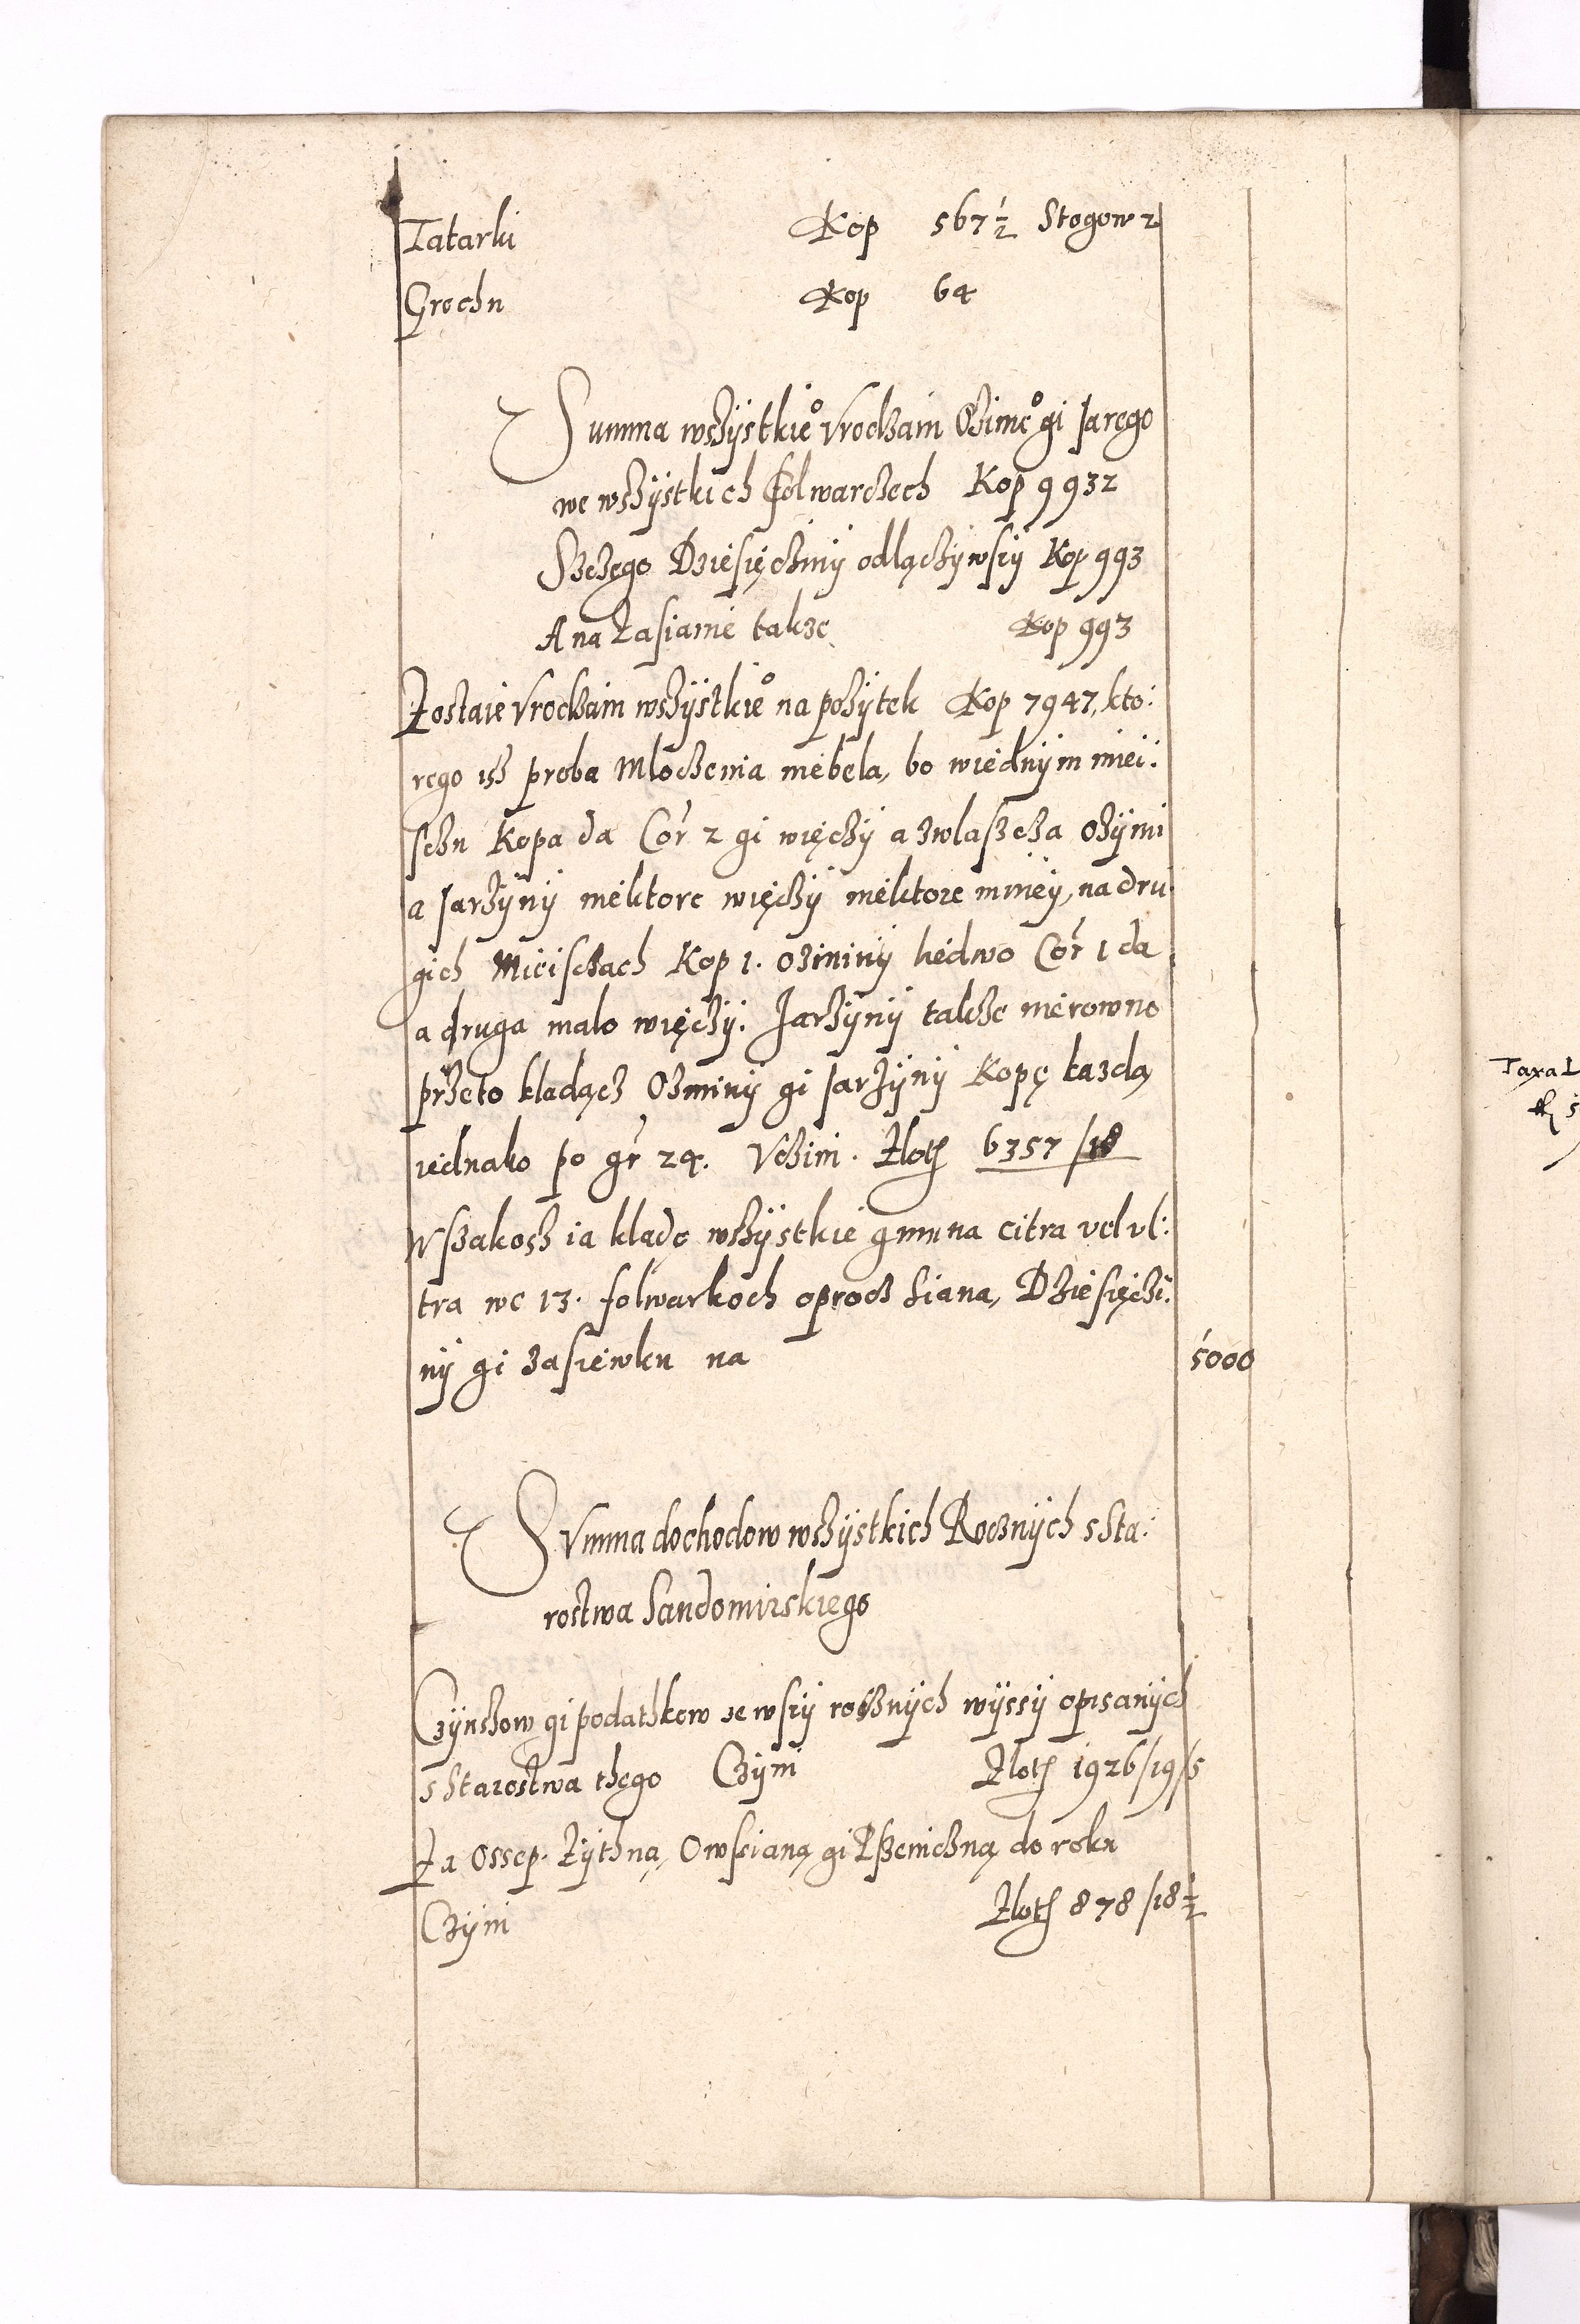 Tatarki Kop 567 1/2 Stogow 2
Grochu Kop 64
Summa wshystkieº Vrodzaiu Ozimeº gi Jarego
we wshystkich folwarczech Kop 9932
S czego Dziesięcziny odlącziwsiy Kop 993
A na Zasianie takze Kop 993
Zostaie Vrodzaiu wshystkieº na pozytek Kop 7947, kto:
rego isz proba Mloczenia niebela, bo wiednym miei:
sczu Kopa da Cor 2 gi więczy a zwlaszcza ozymi
a Jarzyny niektore więczy niektore mniey, na dru
gich Mieisczach Kop 1. oziminy liedwo Cor 1 da
a druga malo więczy. Jarzyny takze nierowno
przeto kladącz Ozminy gi Jarzyny Kopę kazdą
iednako po gr 24. Vczini. Zlot 6357/18
Wszakosz ia kladę wshystkie gumna citra vel vl:
tra we 13. folwarkoch oprocz Siana, Dziesięczi:
ny gi zasiewku na 5000
SVmma dochodow wshystkich Rocznych s Sta:
rostwa Sandomirskiego
Czynshow gi podathkow ze wsiy rocznych wyssy opisanych
s Starostwa thego Czyni Zlot 1926/19/5
Za Ossep. Zythną, Owssianą gi Pszeniczną do roku
Czyni Zlot 878/18 1/2
Taxa